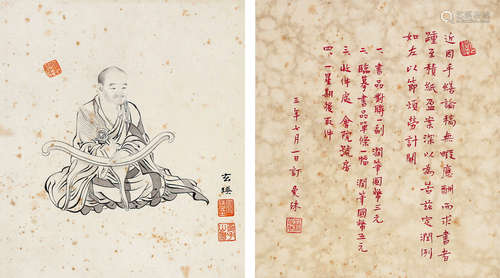 玄瑛
近因手繕論稿無暇應酬而求書者
踵至積紙盈案深以為苦茲定潤例
如左以節煩勞計開
一、書品對聯一副 潤筆國幣三元
二、臨摹書品單條一幅 潤筆國幣五元
三、收件處 會院號房
四、一星期後取件
三年七月一日訂